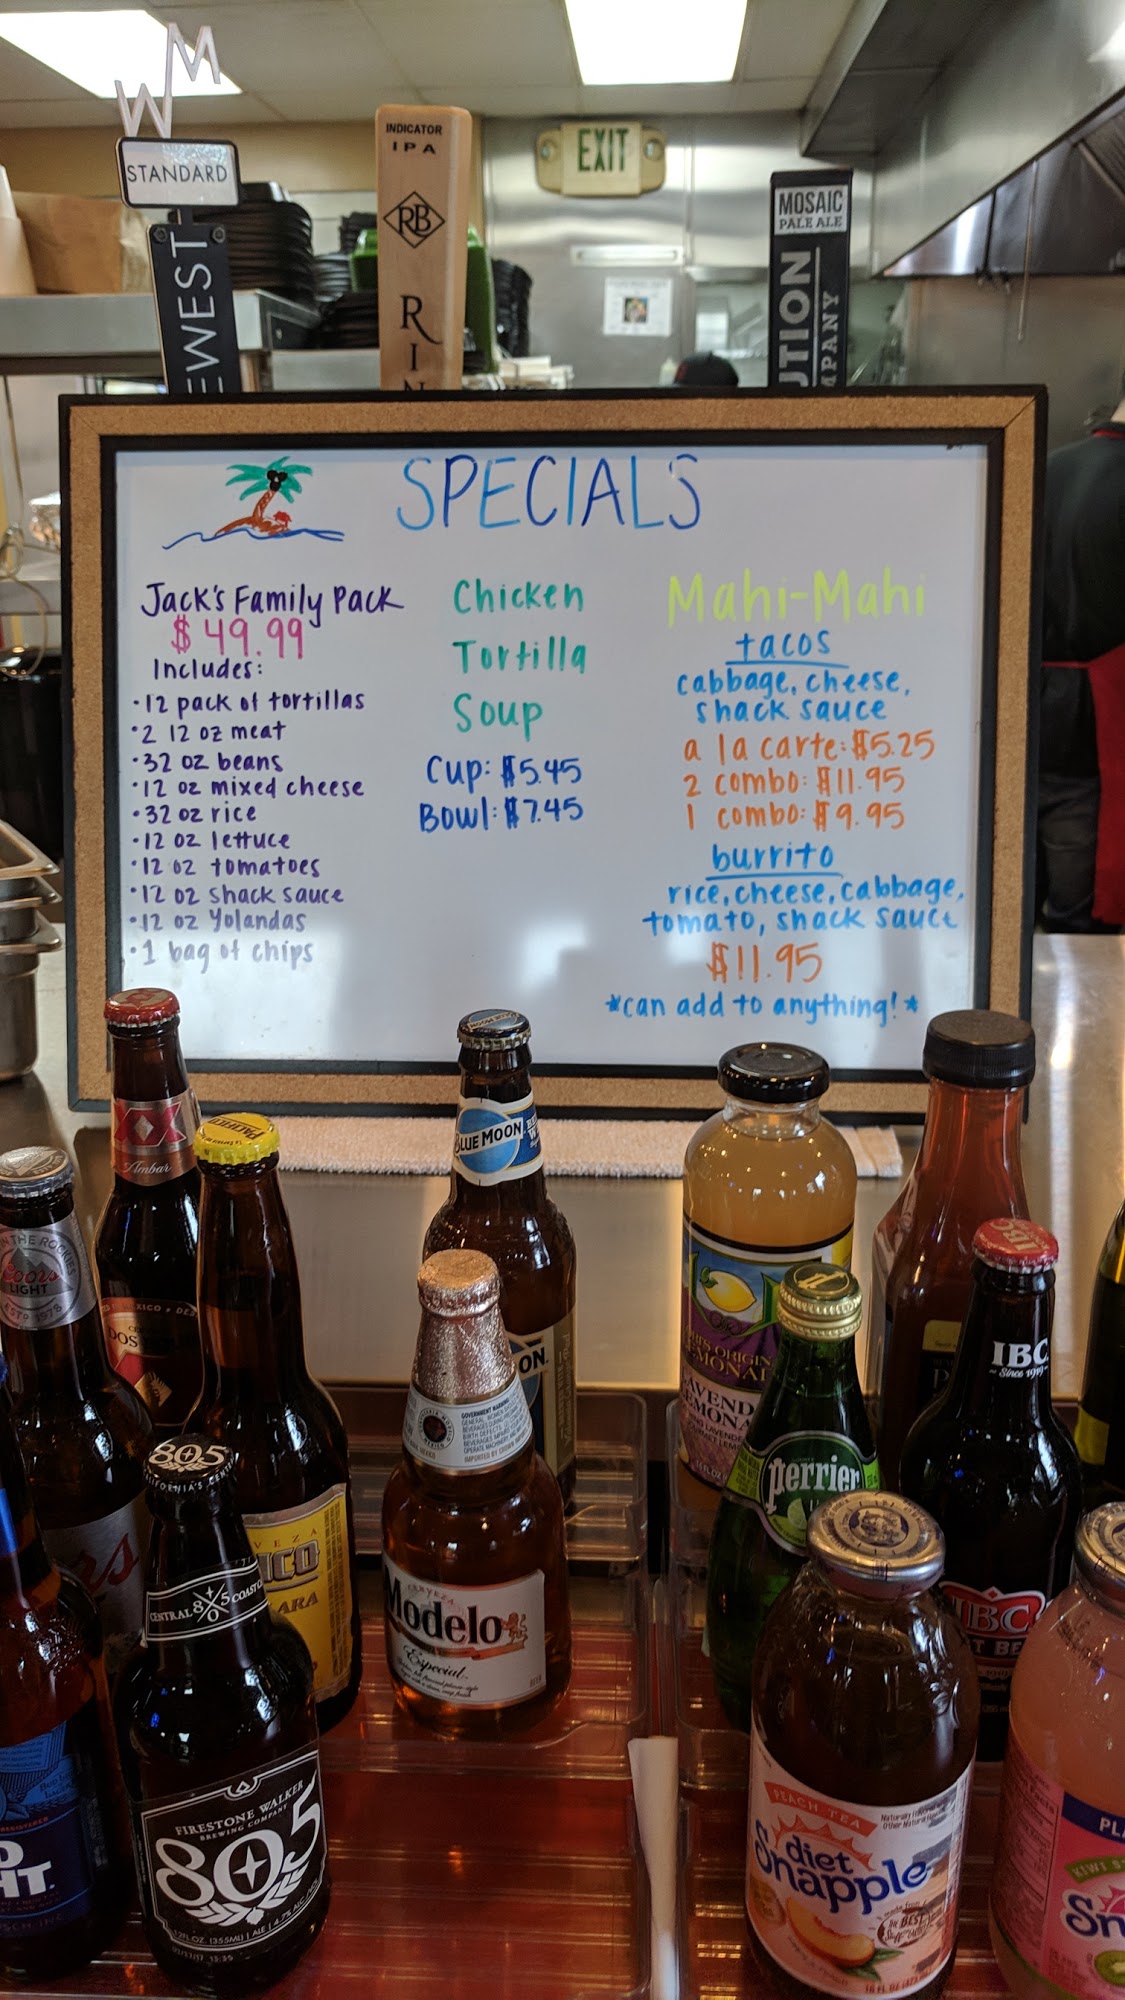 WM
STANDARD
INDICATOR
IPA
RB
EXIT
MOSAIC
PALE ALE
SPECIALS
Jack's Family Pack
$49.99
Includes:
·12 pack of tortillas
·2 12 oz meat
·32 oz beans
·12 oz mixed cheese
·32 oz rice
·12 oz lettuce
·12 oz tomatoes
·12 oz shack sauce
·12 oz Yolandas
·1 bag of chips
Chicken
Tortilla
Soup
Cup: $5.45
Bowl: $7.45
Mahi-Mahi
tacos
cabbage, cheese,
shack sauce
a la carte: $5.25
2 combo: $11.95
1 combo: $9.95
burrito
rice, cheese, cabbage,
tomato, shack sauce
$11.95
*can add to anything!*
XX
Ambar
Pacifico
BLUE MOON
Coors
LIGHT
ESTD 1873
IBC
Since 1919
805
CENTRAL 805 COAST
GOVERNMENT WARNING
perrier
CERVEZA
Modelo
Especial
IBC
FIRESTONE WALKER
BREWING COMPANY
805
12FL. OZ. (355ML) | ALE | 4.7% ALC
PEACH TEA
diet
Snapple